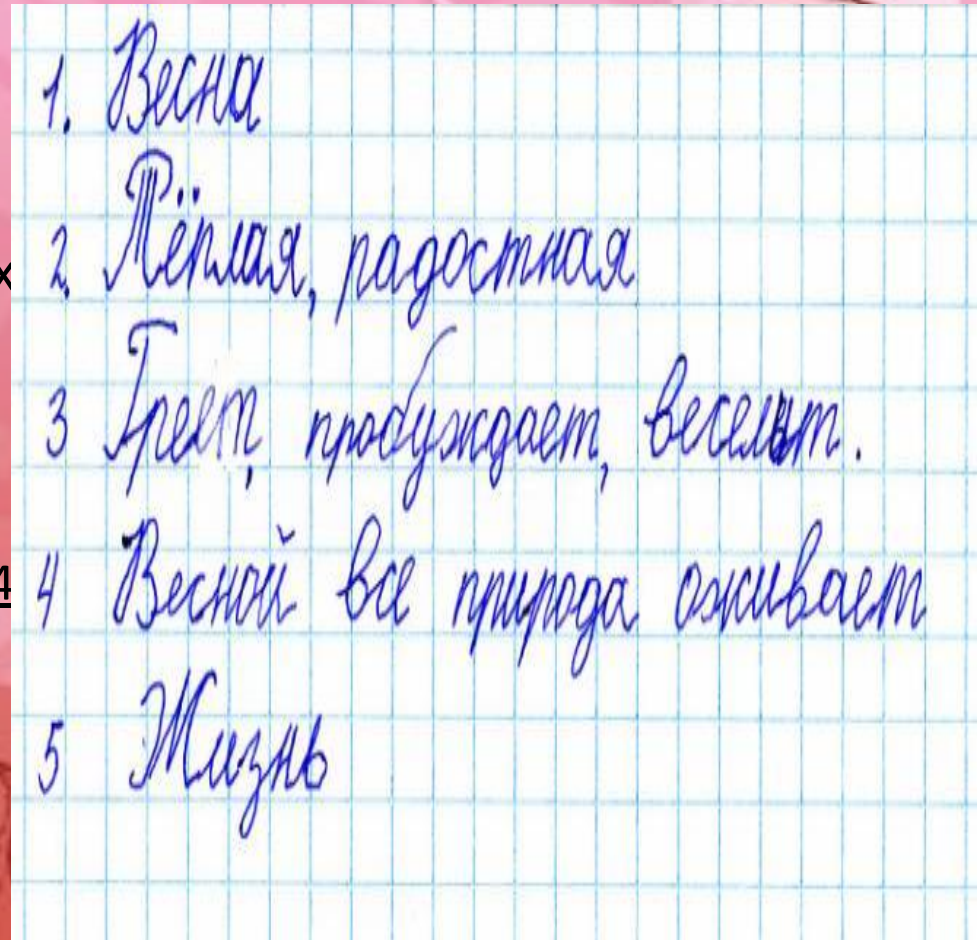 1. Весна
2. Тёплая, радостная
3 Греет, пробуждает, веселит.
4 Весной все природа оживает
5 Жизнь